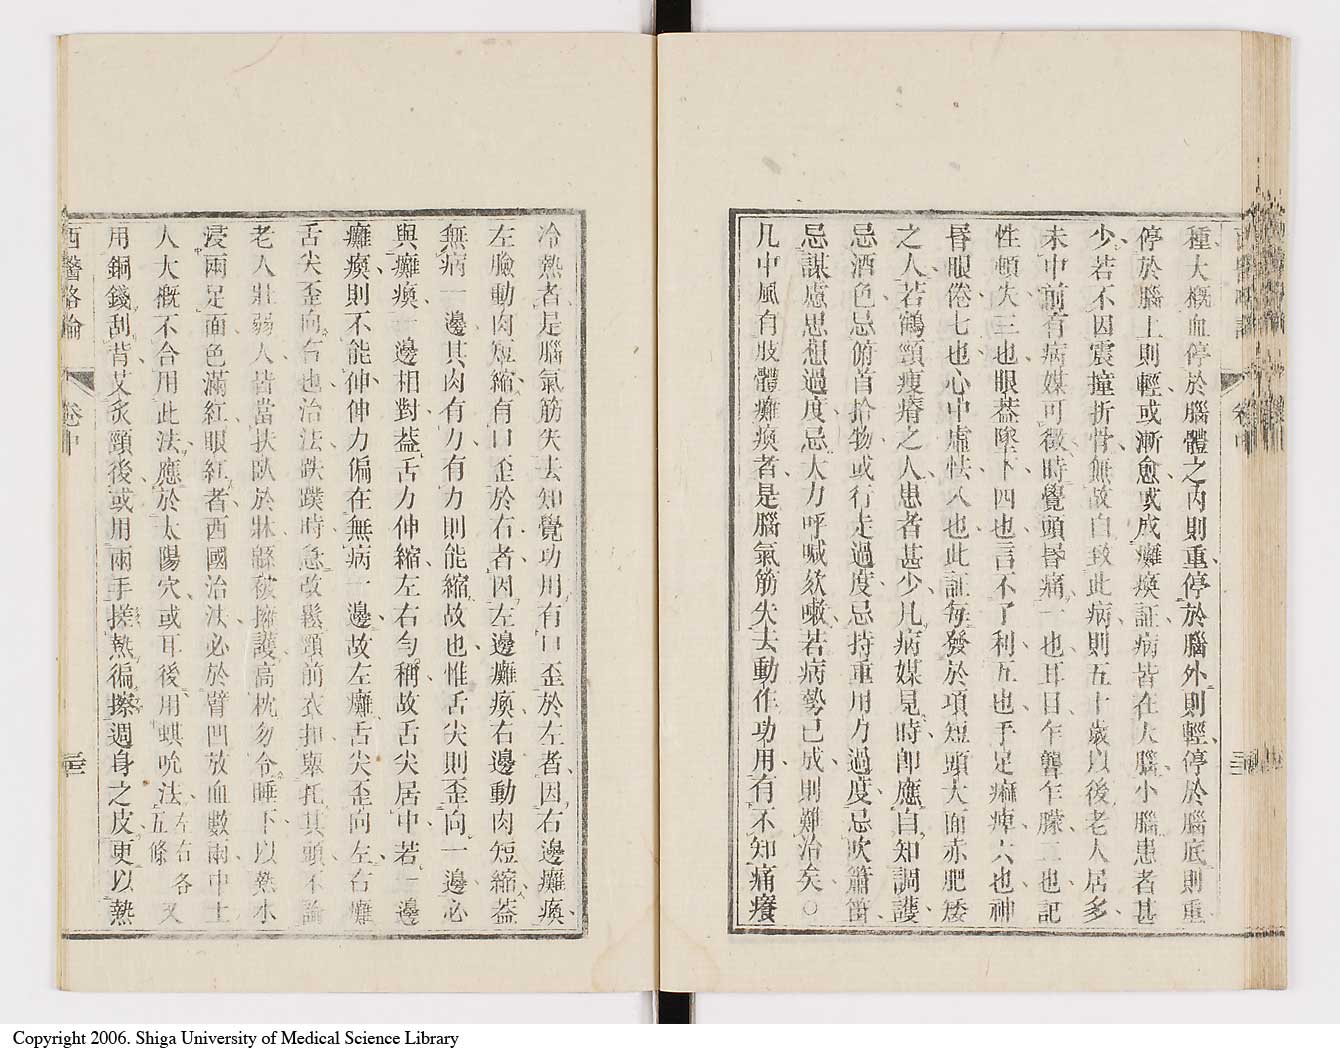 種大概血停於腦體之內則重停於腦外則輕停於腦底則重
停於腦上則輕或漸愈或成癱瘓証病皆在大腦小腦患者甚
少若不因震撞折骨無故自致此病則五十歲以後老人居多
未中前有病媒可徵時覺頭昏痛一也耳目乍聾乍朦二也記
性頓失三也眼蓋墜下四也言不了利五也手足痲痺六也神
昏眼倦七也心中虛怯八也此証每發於項短頭大面赤肥矮
之人若鶴頸瘦瘠之人患者甚少凡病媒見時即應自知調護
忌酒色忌俯首拾物或行走過度忌持重用力過度忌吹簫笛
忌謀慮思想過度忌大力呼喊欬嗽若病勢已成則難治矣○
凡中風有肢體癱瘓者是腦氣筋失去動作功用有不知痛癢
冷熱者是腦氣筋失去知覺功用有口歪於左者因右邊癱瘓
左臉動肉短縮有口歪於右者因左邊癱瘓右邊動肉短縮蓋
無病一邊其肉有力有力則能縮故也惟舌尖則歪向一邊必
與癱瘓一邊相對蓋舌力伸縮左右勻稱故舌尖居中若一邊
癱瘓則不能伸伸力偏在無病一邊故左癱舌尖歪向左右癱
舌尖歪向右也治法跌蹼時急改鬆頸前衣扣擧托其頭不論
老人壯弱人皆當扶臥於牀緜被擁護高枕勿令睡下以熱水
浸兩足面色滿紅眼紅者西國治法必於臂凹放血數兩中土
人大概不合用此法應於太陽穴或耳後用蜞吮法左右各五條又
用銅錢刮背艾炙頸後或用兩手搓熱徧擦週身之皮更以熱
西醫略論 卷中 二十三
Copyright 2006. Shiga University of Medical Science Library